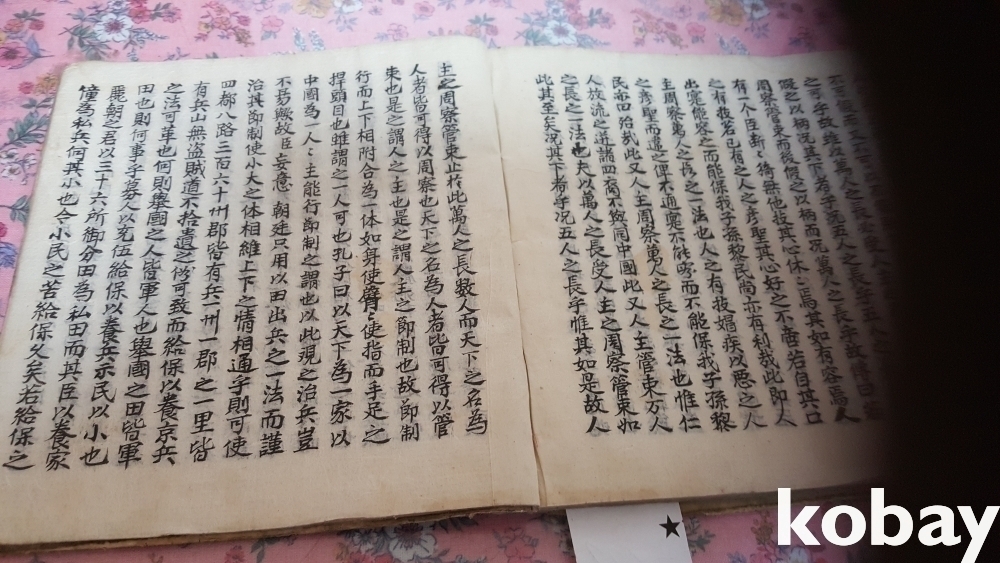 之可乎故雖從萬人之
假之以柄況其下者乎況五人之長乎故傳曰若
周察管束而後假之以柄而況萬人之
有一个臣斷斷猗無他技其心休休焉其如有容焉人
之有技若己有之人之彦聖其心好之不啻若自其口
出寔能容之而能保我子孫黎民尚亦有利哉此即人
主周察萬人之長之一法也人之有技媢疾以惡之人
之彦聖而違之俾不通寔不能容而不能保我子孫黎
民亦曰殆哉此又人主周察萬人之長之一法也惟仁
人放流之迸諸四裔不與同中國此又人主管束万人
之長之一法也夫以萬人之長受人主之周察管束如
此其至矣況其下者乎況五人之長乎惟其如是故人
主之周察管束止於此萬人之長數人而天下之名為
人者皆可得以周察也天下之名為人者皆可得以管
束也是之謂人之主也是之謂人主之節制也故節制
行而上下相附合為一体如身使臂臂使指而手足之
捍頭目也雖謂之一人可也孔子曰以天下為一家以
中國為一人人主能行節制之謂也以此現之治兵豈
不易歟故臣妄意 朝廷只用以田出兵之一法而謹
治其節制使小大之体相維上下之情相通乎則可使
四都八路三百六十州郡皆有兵一州一郡之一里皆
有兵山無盜賊道不拾遺之俗可致而給保以養京兵
之法可革也何則擧國之人皆軍人也擧國之田皆軍
田也則何事乎募人以充伍給保以養兵示民以小也
麗朝之君以三十六所御分田為私田而其臣以養家
僮為私兵何其小也今小民之苦給保久矣若給保之
kobay